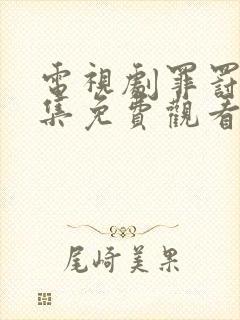 電視劇罪罰
集免費觀看
尾崎美果